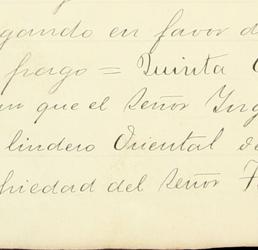 gando en favor d
pago = Quinta
que el Señor Ing
lindero Oriental de
piedad del Señor F